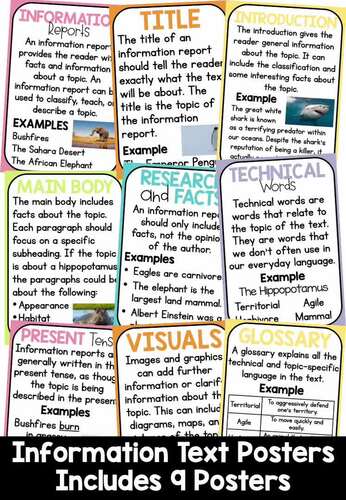 INFORMATION
Reports
An information report
provides the reader with
facts and information
about a topic. An
information report can be
used to classify, teach, or
describe a topic.
EXAMPLES
Bushfires
The Sahara Desert
The African Elephant
TITLE
The title of an
information report
should tell the reader
exactly what the text
will be about. The
title is the topic of
the information
report.
Example
The Emperor Penguin
INTRODUCTION
The introduction gives the
reader general information
about the topic. It can
include the classification and
some interesting facts about
the topic.
Example
The great white
shark is known
as a terrifying predator within
our oceans. Despite the shark's
reputation of being a killer, it
MAIN BODY
The main body includes
facts about the topic.
Each paragraph should
focus on a specific
subheading. If the topic
is about a hippopotamus
the paragraphs could
be about the following:
• Appearance
• Habitat
RESEARCH
and FACTS
An information report
should only include
facts, not the opinion
of the author.
Examples
• Eagles are carnivores
• The elephant is the
largest land mammal.
• Albert Einstein was a
TECHNICAL
Words
Technical words are
words that relate to
the topic of the text.
They are words that
we don't often use in
our everyday language.
Example
The Hippopotamus
Territorial Agile
Herbivore Mammal
PRESENT Tense
Information reports are
generally written in the
present tense, as though
the topic is being
described in the present.
Examples
Bushfires burn
VISUALS
Images and graphics
can add further
information or clarify
information about the
topic. This can include
diagrams, maps, an
GLOSSARY
A glossary explains all the
technical and topic-specific
language in the text.
Example
Territorial To aggressively defend
one's territory.
Agile To move quickly and
easily.
Information Text Posters
Includes 9 Posters